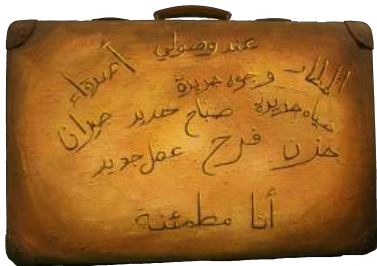 عند وصولي
المطار وجوه جديدة أصدقاء
حياه جديدة صباح جديد جيران
حزن فرح عمل جديد
أنا مطمئنة